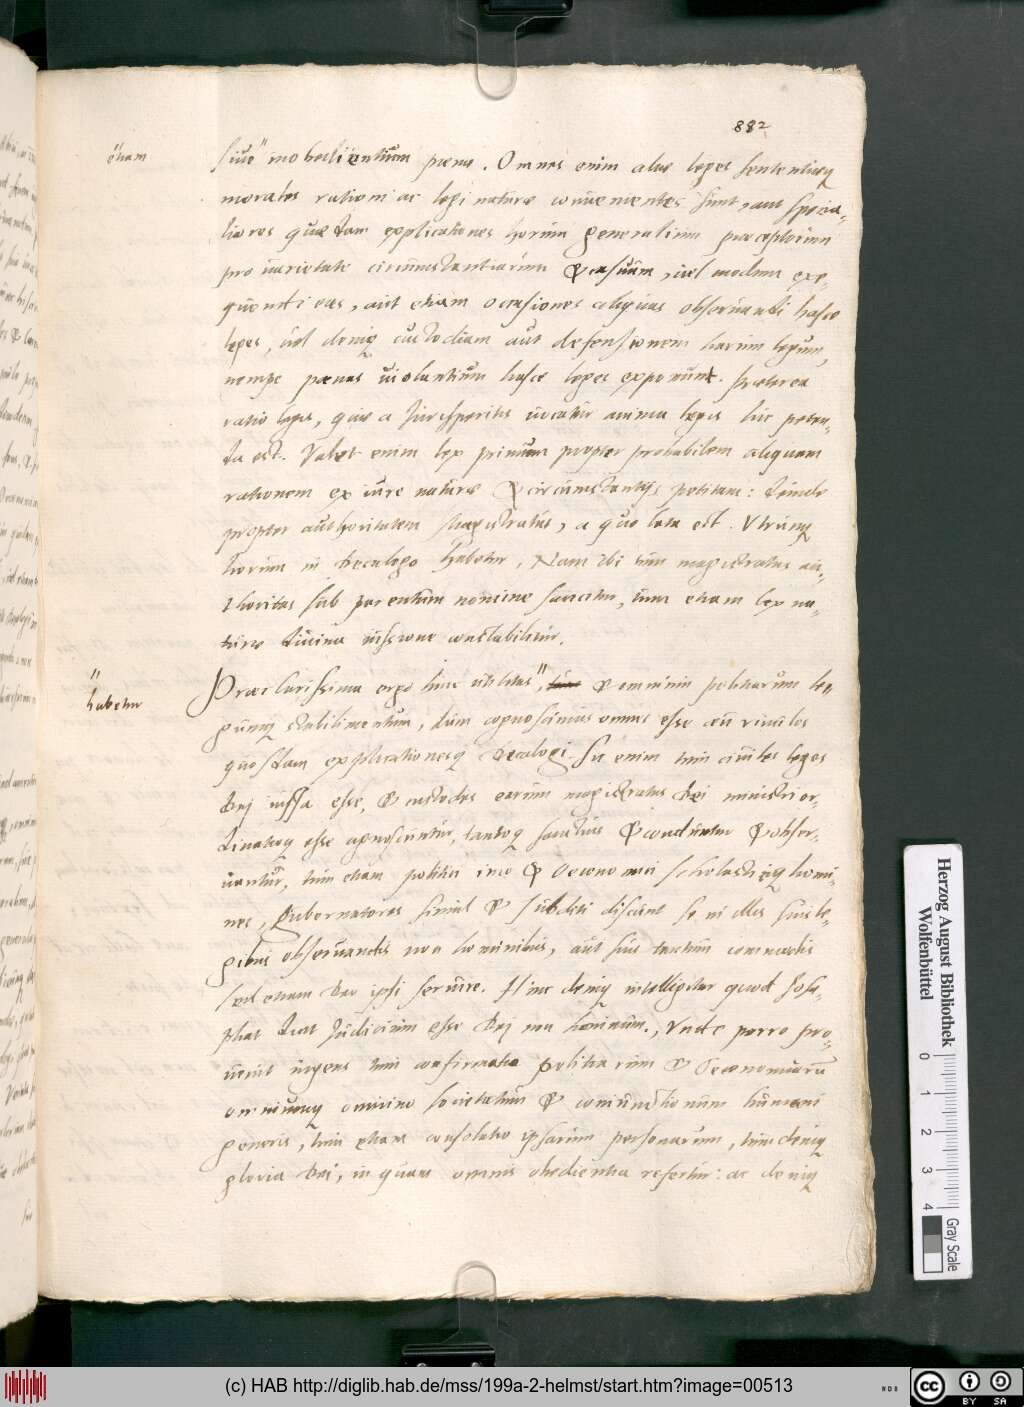 882
etiam
siue" inobedientium pœnæ. Omnes enim aliæ leges sententiæq
morales rationi ac legi naturæ conuenientes sunt, aut specia-
liores quædam explicationes horum generalium præceptorum
pro uarietate circumstantiarum & casuum, uel modum exe-
quendi eas, aut etiam occasiones aliquas obseruandi hasce
leges, uel deniq custodiam aut defensionem harum legum,
nempe pœnas uiolantium hasce leges exponunt. Præterea
ratio legis, quæ a Jurisperitis uocatur anima legis hic peten-
da est. Valet enim lex primum propter probabilem aliquam
rationem ex iure naturæ & circumstantijs petitam: deinde
propter authoritatem Magistratus, a quo lata est. Vtrunq
horum in Decalogo habetur, Nam ibi tum magistratus au-
thoritas sub parentum nomine sancitur, tum etiam lex na-
turæ diuina iussione constabilitur.
"
habetur
Præclarissima ergo hinc utilitas", & omnium politiarum le-
gumq stabilimentum, dum cognoscimus omnes esse ceu riuulos
quosdam explicationesq Decalogi. Si enim tum ciuiles leges
Dej iussa esse, & custodes earum magistratus Dei ministri or-
dinatiq esse agnoscuntur, tantoq sanctius & conduntur & obser-
uantur, tum etiam politici imo & Oeconomici Scholasticiq homi-
nes, Gubernatores simul & Subditi discunt se in illis suis le-
gibus obseruandis non hominibus, aut suis tantum commodis
sed etiam Deo ipsi seruire. Hinc deniq intelligitur quod Josa-
phat dicit Judicium esse Dej non hominum., Vnde porro pro-
uenit ingens tum confirmatio politiarum & Oeconomiarū
omniumq omnino societatum & coniunctionum humani
generis, tum etiam consolatio ipsarum personarum, tum deniq
gloria Dei, in quam omnis obedientia refertur: ac deniq
Herzog August Bibliothek
Wolfenbüttel
0 1 2 3 4
Gray Scale
(c) HAB http://diglib.hab.de/mss/199a-2-helmst/start.htm?image=00513
cc BY SA